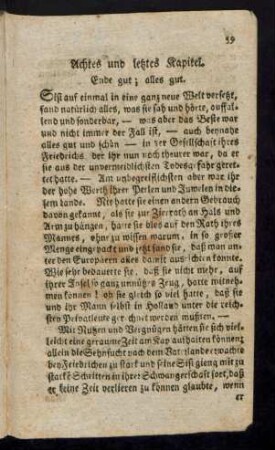 59
Achtes und letztes Kapitel.
Ende gut; alles gut.
Sisi auf einmal in eine ganz neue Welt versetzt,
fand natürlich alles, was sie sah und hörte, auffal-
lend und sonderbar, — was aber das Beste war
und nicht immer der Fall ist, — auch beynahe
alles gut und schön — in der Gesellschaft ihres
Friedrichs der ihr nun noch theurer war, da er
sie aus der unvermeidlichsten Todesgefahr gerret-
tet hatte. — Am unbegreiflichsten aber war ihr
der hohe Werth ihrer Perlen und Juwelen in die-
sem Lande. Nie hatte sie einen andern Gebrauch
davon gekannt, als sie zur Zierrath an Hals und
Arm zu hängen, hatte sie alles auf den Rath ihres
Mannes, ohne zu wissen warum, in so großer
Menge eingepackt und jetzt fand sie, daß man un-
ter den Europäern alles damit ausrichten konnte.
Wie sehr bedauerte sie, daß sie nicht mehr, auf
ihrer Insel so ganz unnützes Zeug, hatte mitneh-
men können! ob sie gleich so viel hatte, daß sie
und ihr Mann selbst in Holland unter die reich-
sten Privatleute gerechnet werden mußten. —
Mit Nutzen und Vergnügen hätten sie sich viel-
leicht eine geraume Zeit am Kap aufhalten können;
allein die Sehnsucht nach dem Vaterlande wachte
bey Friedrichen zu stark und seine Sisi gieng mit zu
starken Schritten in ihrer Schwangerschaft fort, daß
er keine Zeit verlieren zu können glaubte, wenn
er